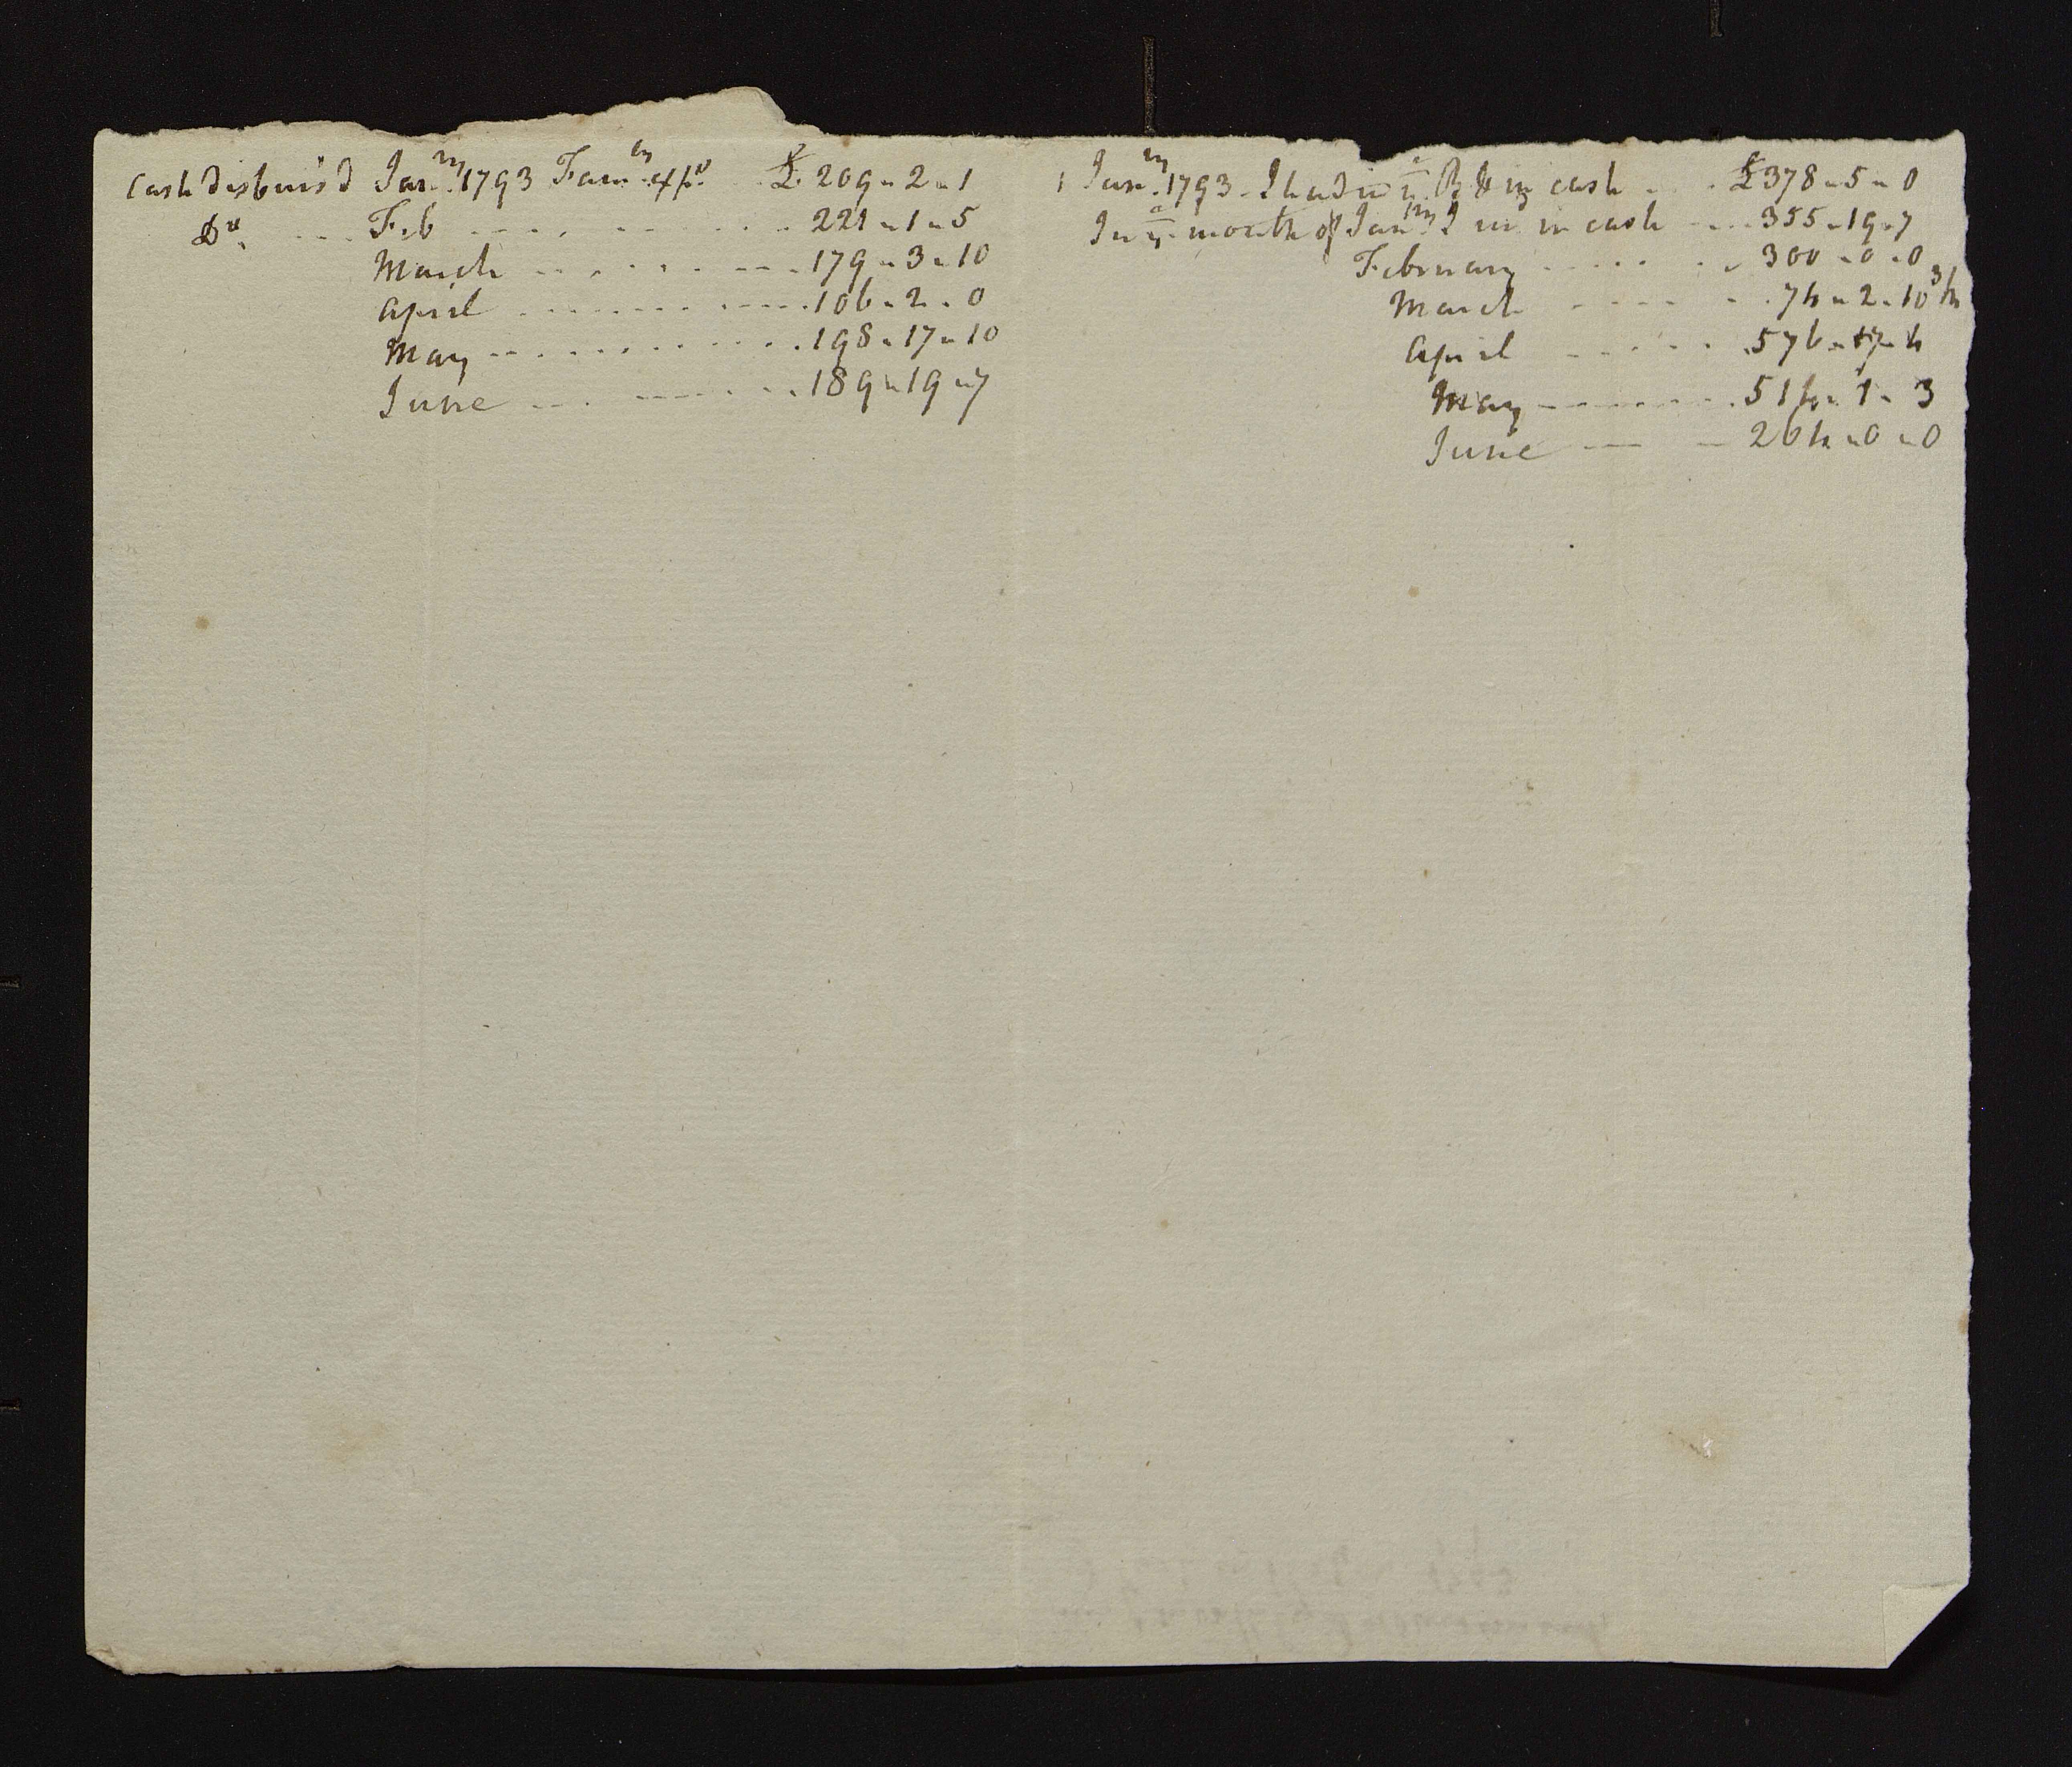 Cash disburs'd Janry. 1793 Famly exps. £209 " 2 " 1
Do. Feb 221 " 1 " 5
March 179 " 3 " 10
April 106 " 2 " 0
May 198 " 17 " 10
June 189 " 19 " 7
1 Janry. 1793 - I had in ye. B & in cash £378 " 5 " 0
In ye. month of Janry. I in cash 355 " 19 " 7
February 300 " 0 " 0
March 74 " 2 " 10 3/4
April 576
May 514 " 1 " 3
June 264 " 0 " 0